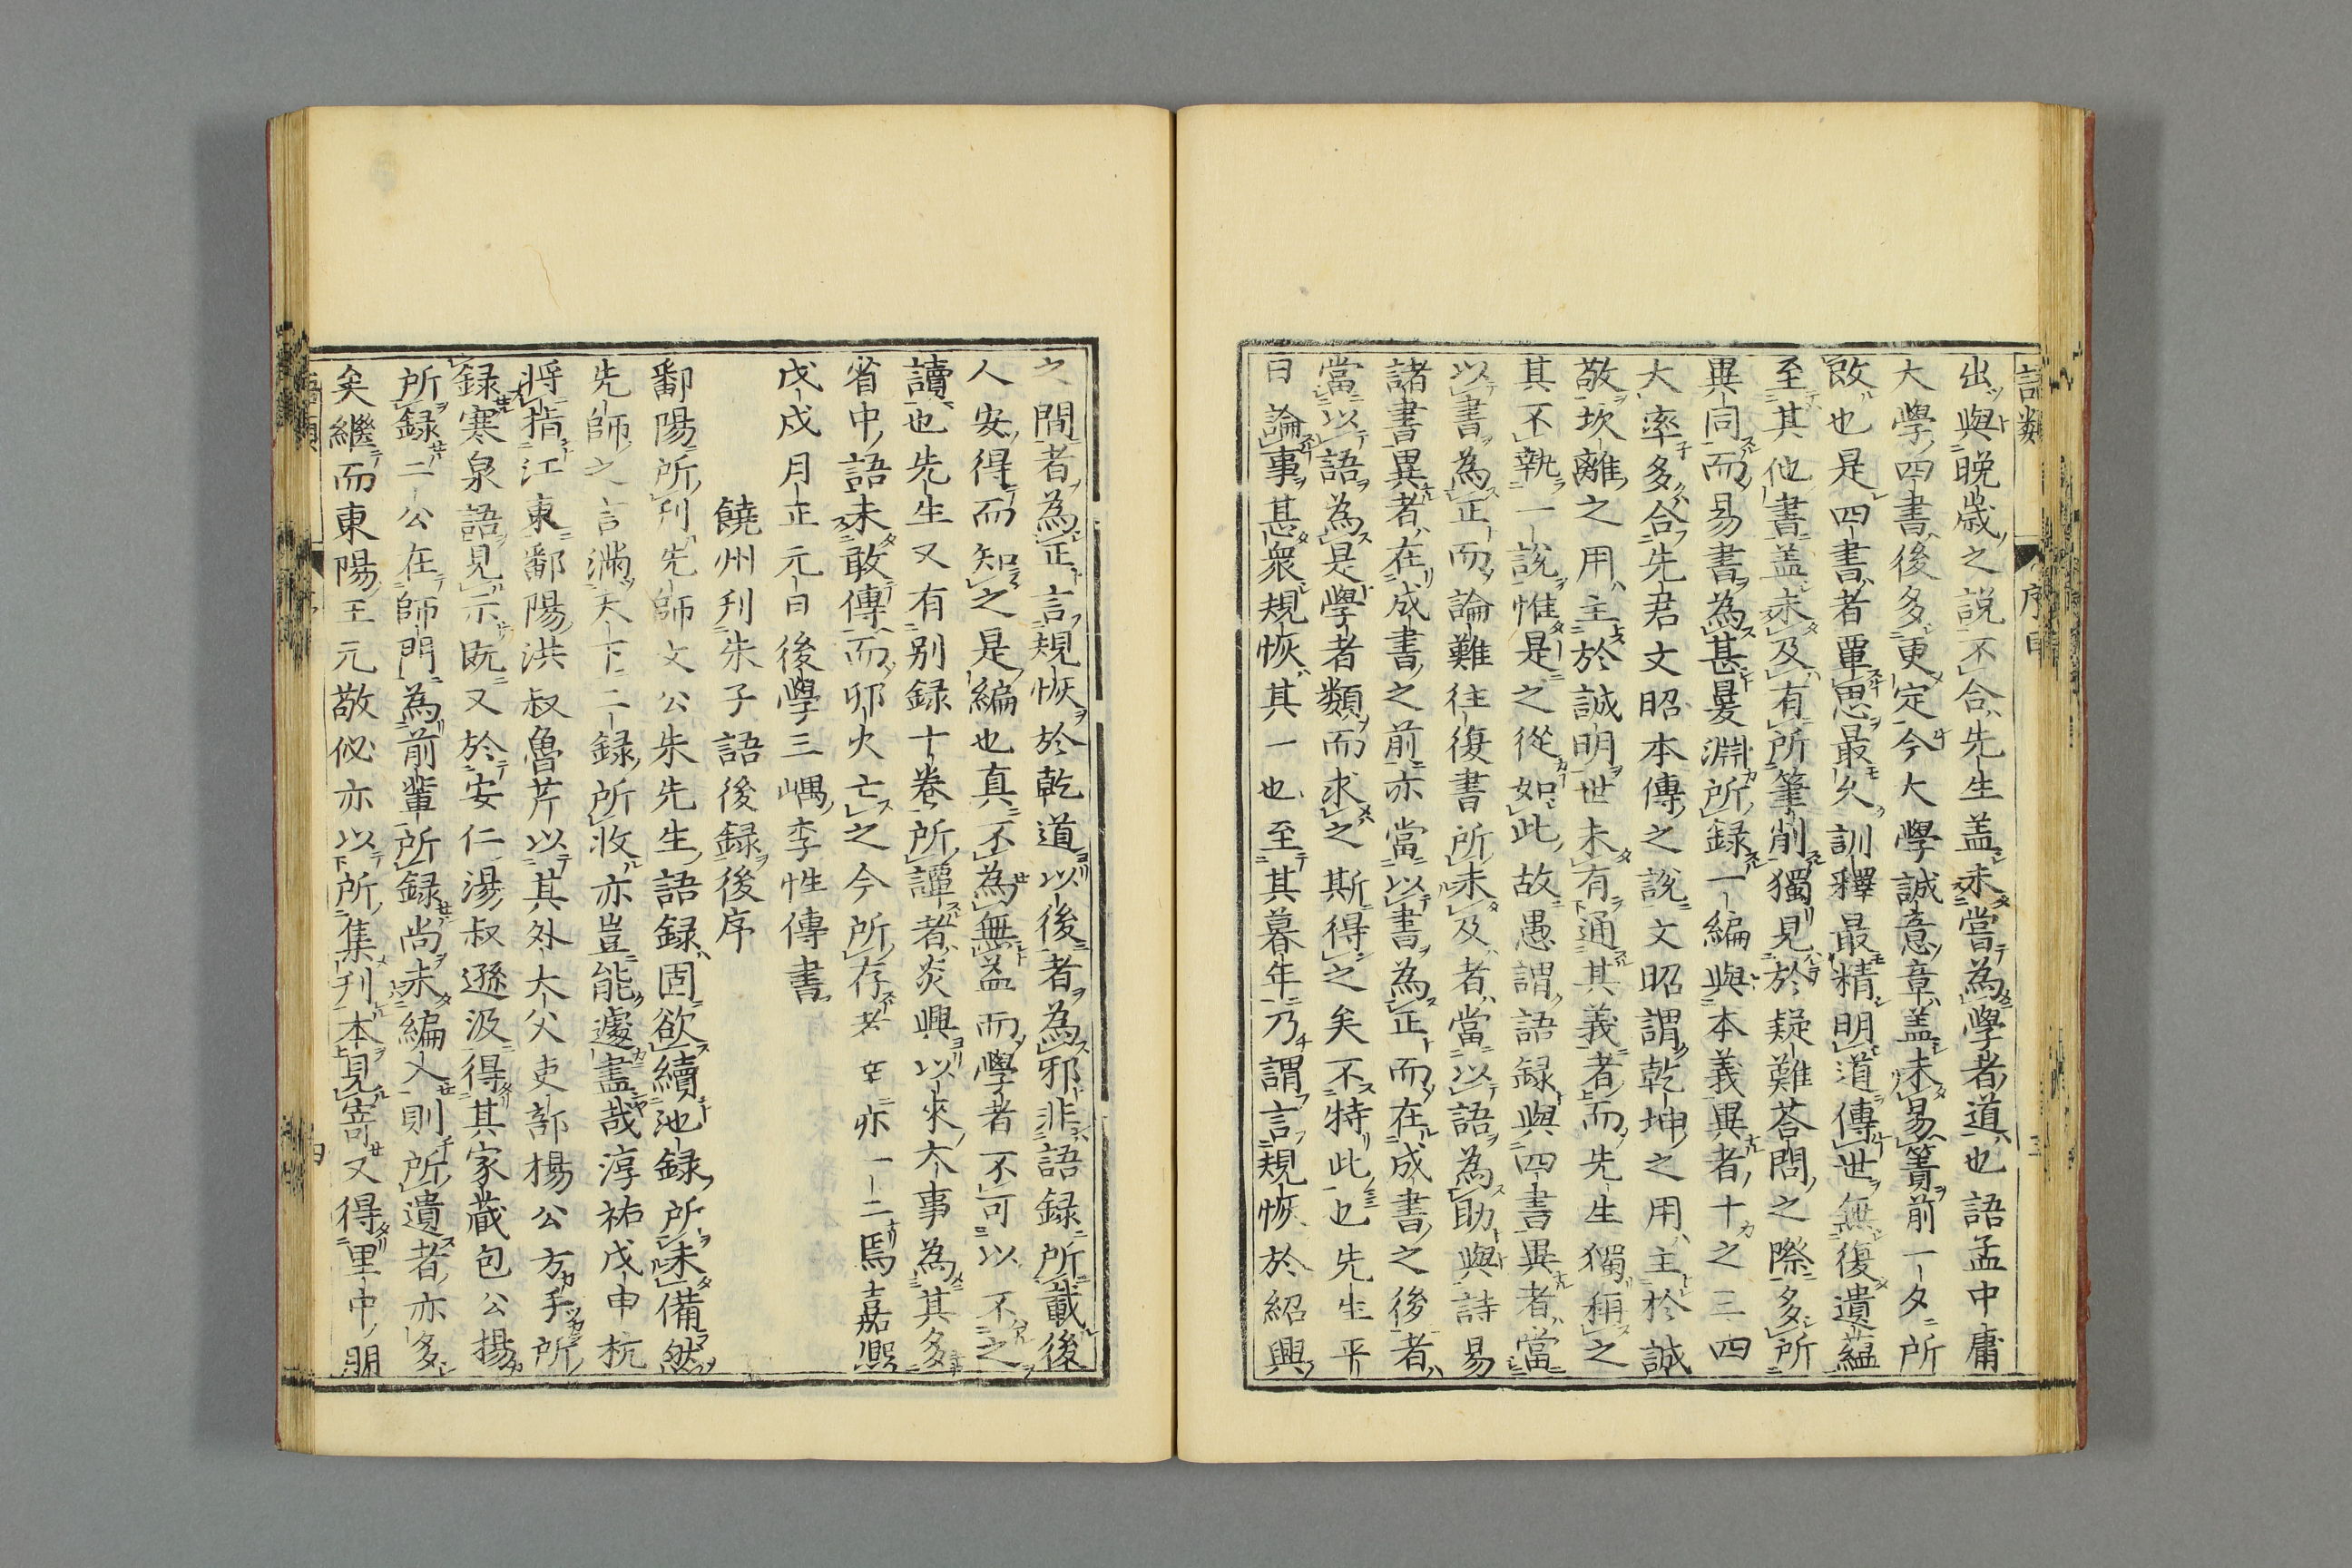 語類
序目
三
出與晩歳之說不合先生盖未嘗為學者道也語孟中庸
大學四書後多更定今大學誠意章盖未易簀前一夕所
改也是四書者覃思最久訓釋最精明道傳世無復遺蘊
至其他書盖未及有所筆削獨見於疑難荅問之際多所
異同而易書為甚㬊淵所録一編與本義異者十之三四
大率多合先君文昭本傳之說文昭謂乾坤之用主於誠
敬坎離之用主於誠明世未有通其義者而先生獨稱之
其不執一說惟是之從如此故愚謂語録與四書異者當
以書為正而論難往復書所未及者當以語為助與詩易
諸書異者在成書之前亦當以書為正而在成書之後者
當以語為是學者類而求之斯得之矣不特此也先生平
日論事甚衆規恢其一也至其暮年乃謂言規恢於紹興
之間者為正言規恢於乾道以後者為邪非語録所載後
人安得而知之是編也真不為無益而學者不可以不之
讀也先生又有别録十卷所譚者炎興以來大事為其多
省中語未敢傳而卯火亡之今所存者幸亦一二焉嘉熈
戊戌月正元日後學三嵎李性傳書
饒州刋朱子語後録後序
鄱陽所刋先師文公朱先生語録固欲續池録所未備然
先師之言滿天下二録所收亦豈能遽盡哉淳祐戊申杭
將指江東鄱陽洪叔魯芹以其外大父吏部楊公方手所
録寒泉語見示既又於安仁湯叔遜汲得其家藏包公揚
所録二公在師門為前輩所録尚未編入則所遺者亦多
矣繼而東陽王元敬佖亦以所集刋本見寄又得里中朋
語類
四